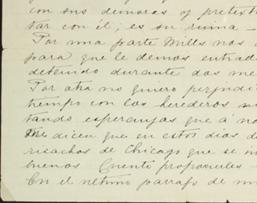 con sus demoras y pretext
tar con él; es su ruina
Por una parte Mills nos
para que le demos entrad
detenido durante dos me
Por otra no quiero perjudi
tiempo con los herederos
tando esperanzas que á no
Me dicen que en estos días
ricachos de Chicago que se
buenos Cuento
En el último parrafo de